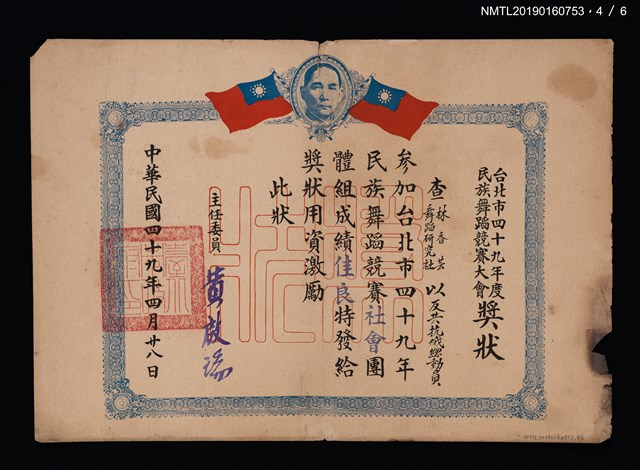 NMTL20190160753 · 4 / 6
台北市四十九年度
民族舞蹈競賽大會
獎狀
查
林香芸
舞蹈研究社
以
反共抗俄總動員
參加台北市四十九年
民族舞蹈競賽社會團
體組成績佳良特發給
獎狀用資激勵
此狀
主任委員
黃啟瑞
中華民國四十九年四月廿八日